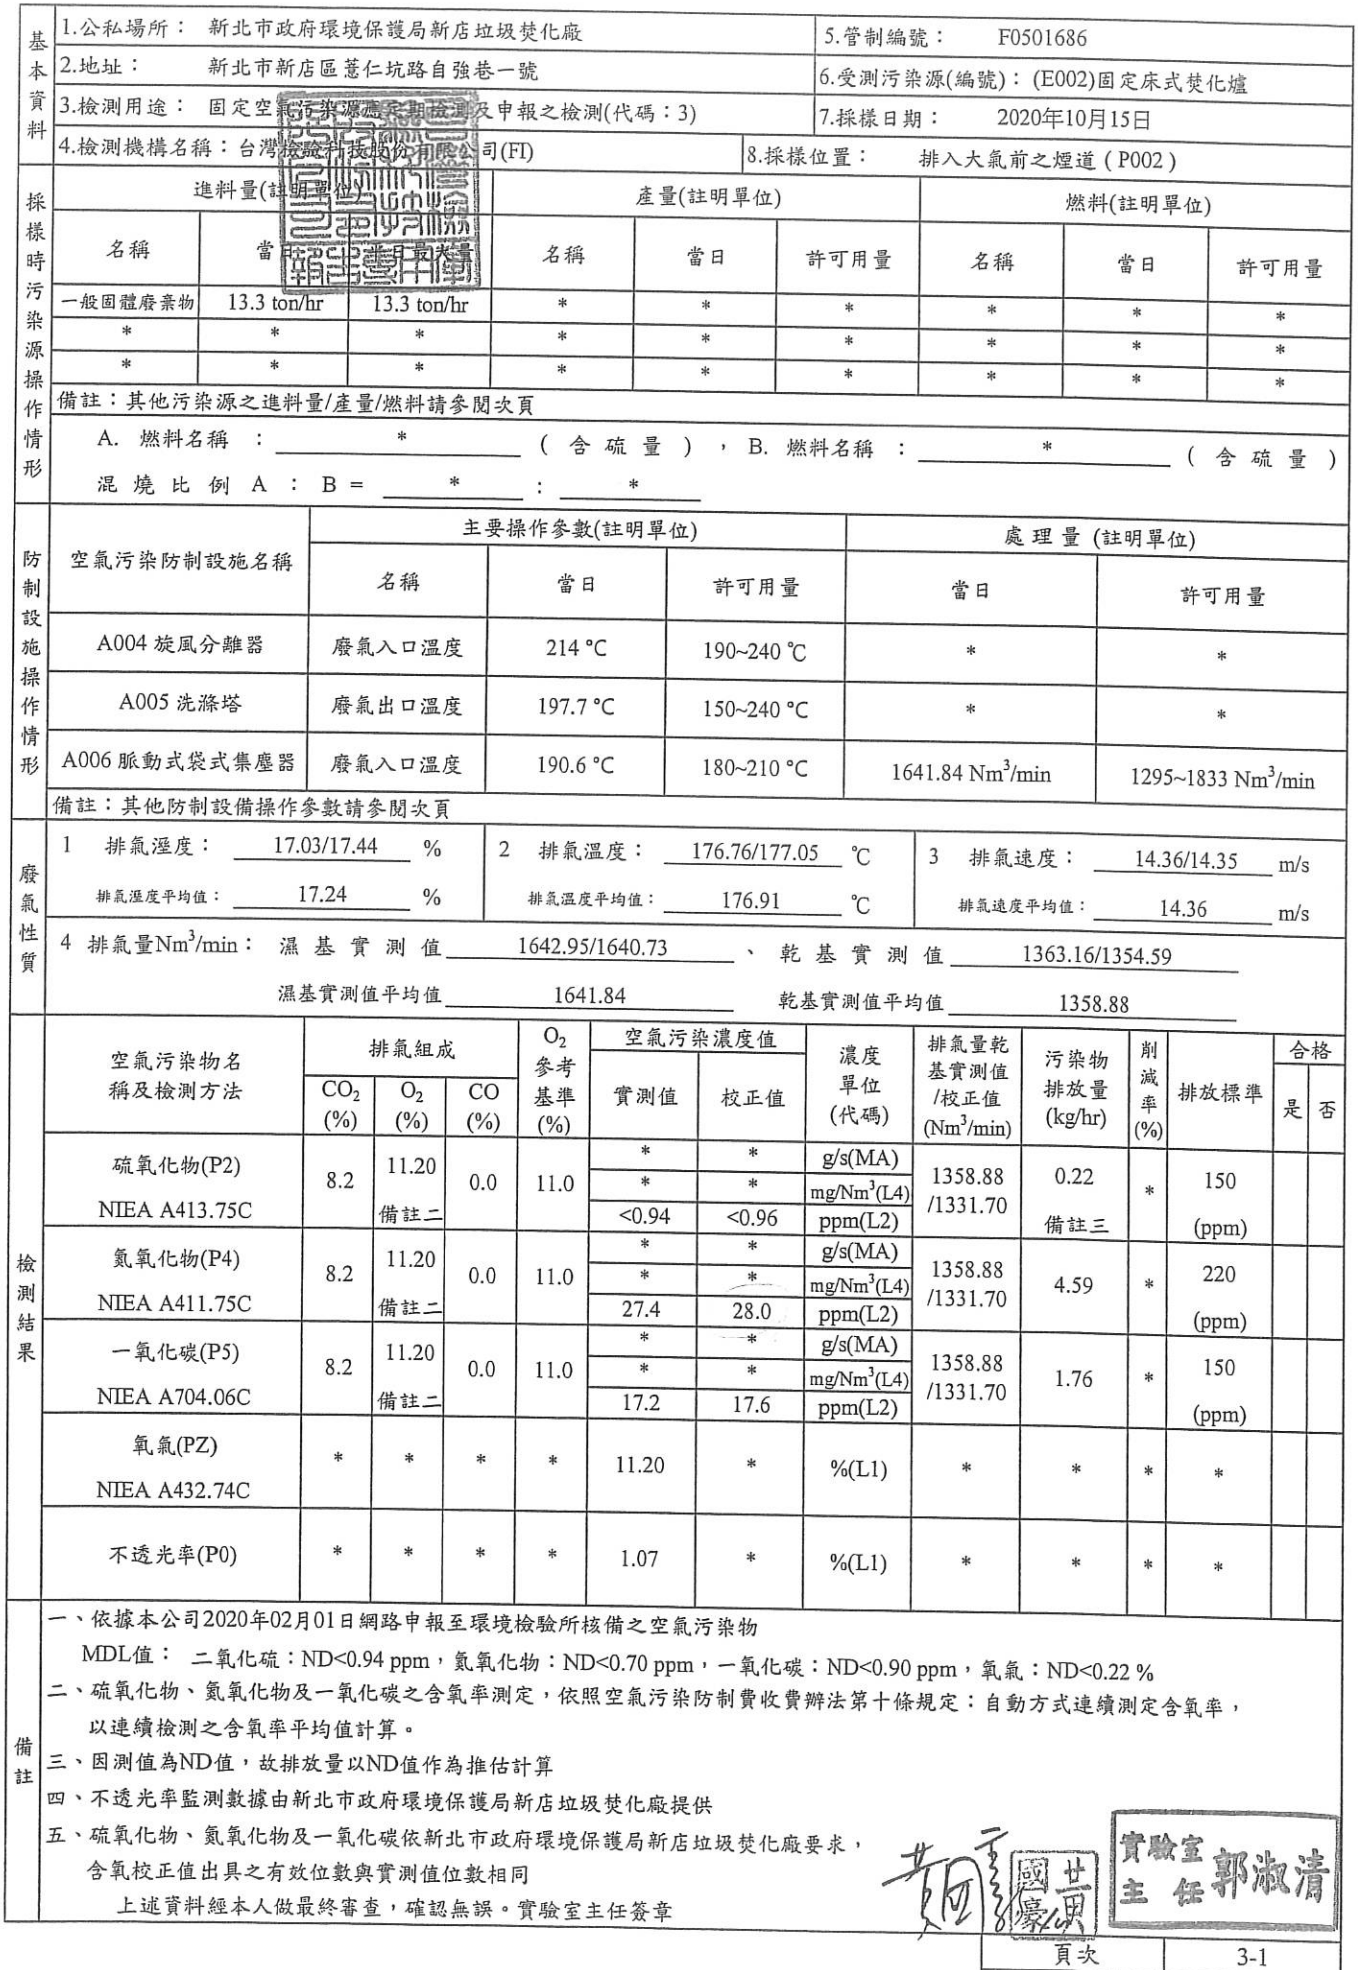 基本資料
1.公私場所： 新北市政府環境保護局新店垃圾焚化廠
5.管制編號： F0501686
2.地址： 新北市新店區薏仁坑路自強巷一號
6.受測污染源(編號)：(E002)固定床式焚化爐
3.檢測用途： 固定空氣污染源應定期檢測及申報之檢測(代碼：3)
7.採樣日期： 2020年10月15日
4.檢測機構名稱：台灣檢驗科技股份有限公司(FI)
8.採樣位置： 排入大氣前之煙道 ( P002 )
採樣時污染源操作情形
進料量(註明單位) 產量(註明單位) 燃料(註明單位)
名稱 當日 當日最大量 名稱 當日 許可用量 名稱 當日 許可用量
一般固體廢棄物 13.3 ton/hr 13.3 ton/hr * * * * * *
* * * * * * * * *
* * * * * * * * *
備註：其他污染源之進料量/產量/燃料請參閱次頁
A. 燃料名稱 ： * ( 含 硫 量 ) ， B. 燃料名稱 ： * ( 含 硫 量 )
混 燒 比 例 A ： B = * : *
防制設施操作情形
空氣污染防制設施名稱 主要操作參數(註明單位) 處 理 量 (註明單位)
名稱 當日 許可用量 當日 許可用量
A004 旋風分離器 廢氣入口溫度 214 °C 190~240 ℃ * *
A005 洗滌塔 廢氣出口溫度 197.7 °C 150~240 °C * *
A006 脈動式袋式集塵器 廢氣入口溫度 190.6 °C 180~210 °C 1641.84 Nm³/min 1295~1833 Nm³/min
備註：其他防制設備操作參數請參閱次頁
廢氣性質
1 排氣溼度： 17.03/17.44 % 2 排氣溫度： 176.76/177.05 ℃ 3 排氣速度： 14.36/14.35 m/s
排氣溼度平均值： 17.24 % 排氣溫度平均值： 176.91 ℃ 排氣速度平均值： 14.36 m/s
4 排氣量Nm³/min： 濕 基 實 測 值 1642.95/1640.73 、 乾 基 實 測 值 1363.16/1354.59
濕基實測值平均值 1641.84 乾基實測值平均值 1358.88
檢測結果
空氣污染物名稱及檢測方法 排氣組成 CO₂ (%) O₂ (%) CO (%) O₂參考基準(%) 空氣污染濃度值 實測值 校正值 濃度單位(代碼) 排氣量乾基實測值/校正值(Nm³/min) 污染物排放量(kg/hr) 削減率(%) 排放標準 合格 是 否
硫氧化物(P2) NIEA A413.75C 8.2 11.20 備註二 0.0 11.0 * * g/s(MA) 1358.88/1331.70 0.22 備註三 * 150 (ppm)
* * mg/Nm³(L4)
<0.94 <0.96 ppm(L2)
氮氧化物(P4) NIEA A411.75C 8.2 11.20 備註二 0.0 11.0 * * g/s(MA) 1358.88/1331.70 4.59 * 220 (ppm)
* * mg/Nm³(L4)
27.4 28.0 ppm(L2)
一氧化碳(P5) NIEA A704.06C 8.2 11.20 備註二 0.0 11.0 * * g/s(MA) 1358.88/1331.70 1.76 * 150 (ppm)
* * mg/Nm³(L4)
17.2 17.6 ppm(L2)
氧氣(PZ) NIEA A432.74C * * * * 11.20 * %(L1) * * * *
不透光率(P0) * * * * 1.07 * %(L1) * * * *
備註
一、依據本公司2020年02月01日網路申報至環境檢驗所核備之空氣污染物
MDL值： 二氧化硫：ND<0.94 ppm，氮氧化物：ND<0.70 ppm，一氧化碳：ND<0.90 ppm，氧氣：ND<0.22 %
二、硫氧化物、氮氧化物及一氧化碳之含氧率測定，依照空氣污染防制費收費辦法第十條規定：自動方式連續測定含氧率，
以連續檢測之含氧率平均值計算。
三、因測值為ND值，故排放量以ND值作為推估計算
四、不透光率監測數據由新北市政府環境保護局新店垃圾焚化廠提供
五、硫氧化物、氮氧化物及一氧化碳依新北市政府環境保護局新店垃圾焚化廠要求，
含氧校正值出具之有效位數與實測值位數相同
上述資料經本人做最終審查，確認無誤。實驗室主任簽章
黃國豪
實驗室主任 郭淑清
頁次 3-1